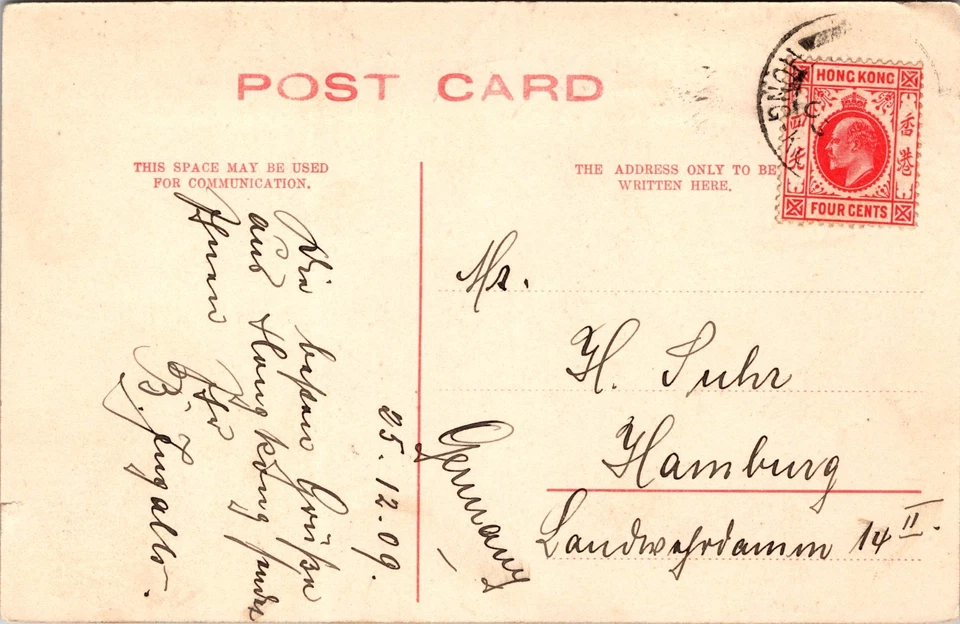 POST CARD
THIS SPACE MAY BE USED
FOR COMMUNICATION.
THE ADDRESS ONLY TO BE
WRITTEN HERE.
HONG KONG
香港
FOUR CENTS
HONG K
25.12.09.
Die besten Grüße
aus Hongkong sendet
Ihnen Ihr
B.
Mr.
H. Suhr
Hamburg
Landwehrdamm 14 II.
Germany